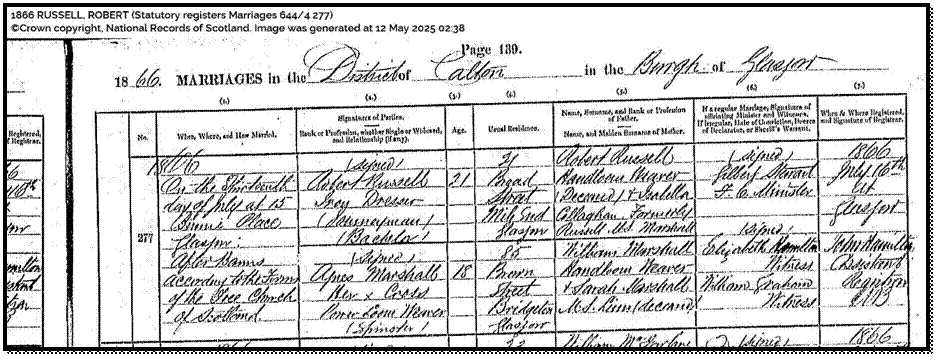 1866 RUSSELL, ROBERT (Statutory registers Marriages 644/4 277)
©Crown copyright, National Records of Scotland. Image was generated at 12 May 2025 02:38
Page 139.
1866. MARRIAGES in the District of Calton in the Burgh of Glasgow
(1.) (2.) (3.) (4.) (5.) (6.) (7.)
No.
When, Where, and How Married.
Signatures of Parties.
Rank or Profession, whether Single or Widowed, and Relationship (if any).
Age.
Usual Residence.
Name, Surname, and Rank or Profession of Father.
Name, and Maiden Surname of Mother.
If a regular Marriage, Signatures of officiating Minister and Witnesses.
If irregular, Date of Conviction, Decree of Declarator, or Sheriff's Warrant.
When & Where Registered, and Signature of Registrar.
277
1866
On the Thirteenth
day of July at 15
Place
Glasgow:
After Banns
according to the Forms
of the Free Church
of Scotland
(signed)
Robert Russell
Iron Dresser
(Journeyman)
(Bachelor)
(signed)
Agnes Marshall
Her x Cross
Power Loom Weaver
(Spinster)
21
18
21
Broad
Street
Mile End
Glasgow
85
Street
Bridgeton
Glasgow
Robert Russell
Handloom Weaver
(Deceased) & Isabella
Callaghan Formerly
Russell M.S. Marshall
William Marshall
Handloom Weaver
& Sarah Marshall
M.S. (deceased)
(signed)
Stewart
F. C. Minister
(signed)
Elizabeth Hamilton
Witness
William Graham
Witness
1866
July 16th
At
Glasgow
John Hamilton
Assistant
Registrar
1866
22
William
(signed)
1866